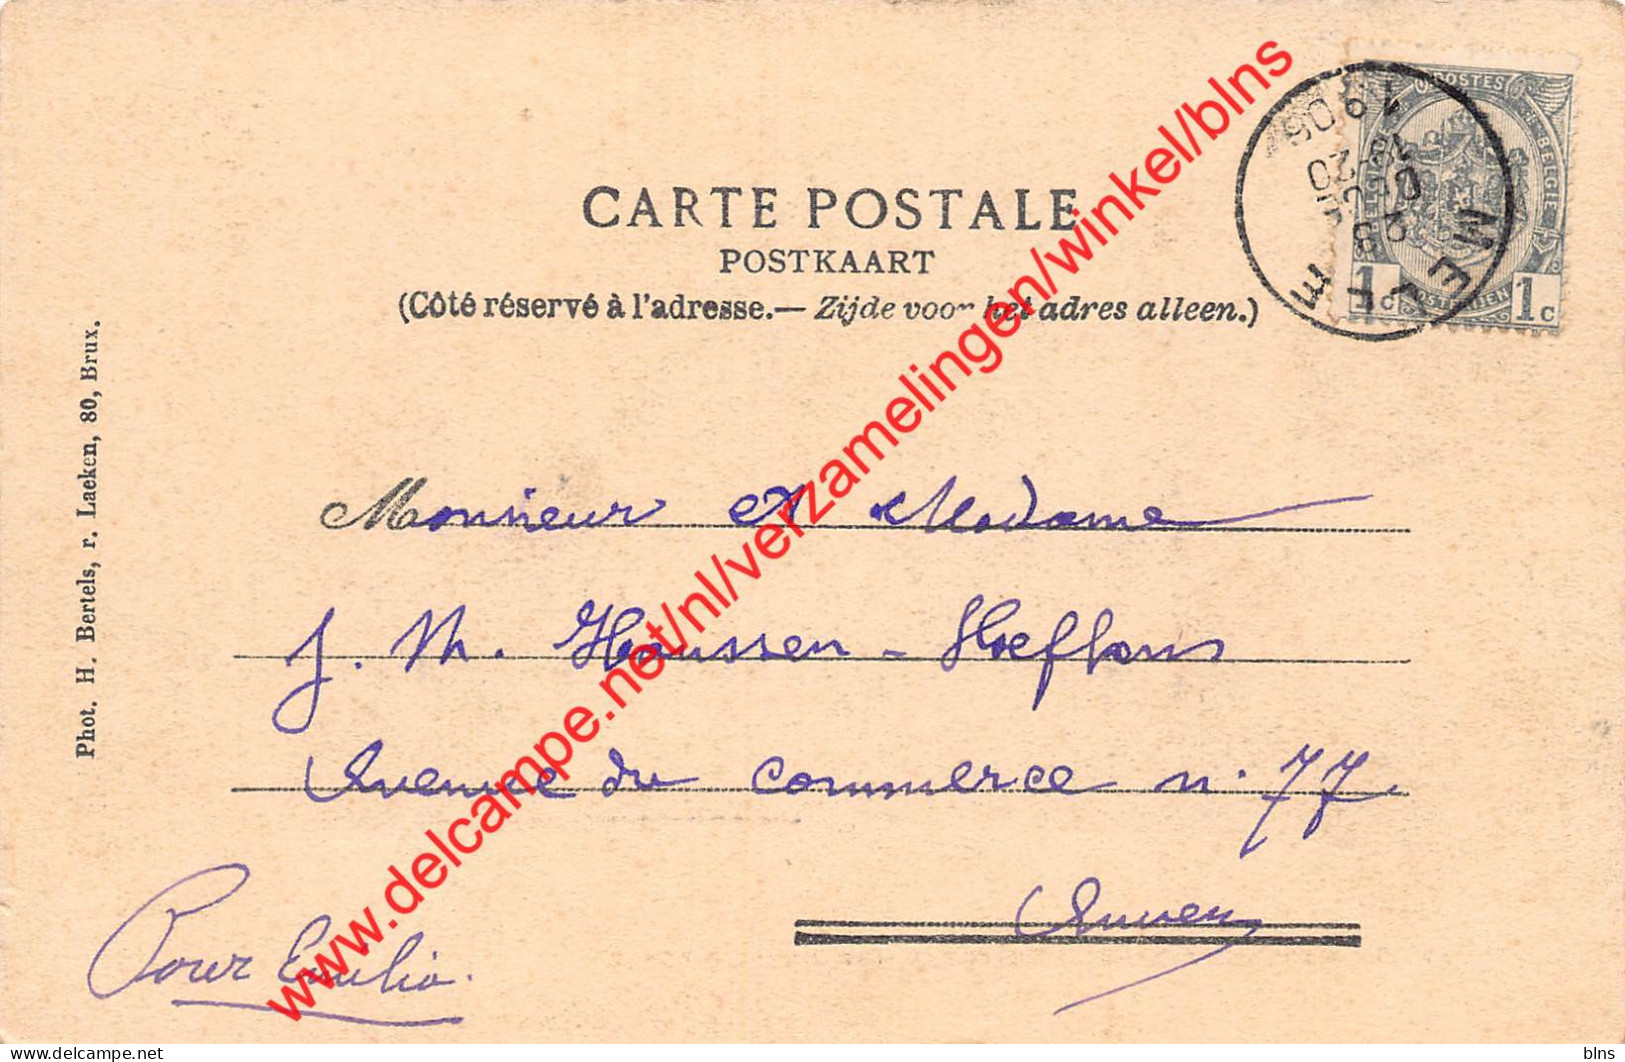 CARTE POSTALE
POSTKAART
(Côté réservé à l'adresse.— Zijde voor het adres alleen.)
POSTES
BELGIE
1c 1c
MELLE
1906
Phot. H. Bertels, r. Laeken, 80, Brux.
Monsieur et Madame
J. M.
Avenue du commerce n. 77.
Anvers
Pour Emilia.
www.delcampe.net/nl/verzamelingen/winkel/blns
delcampe.net
blns